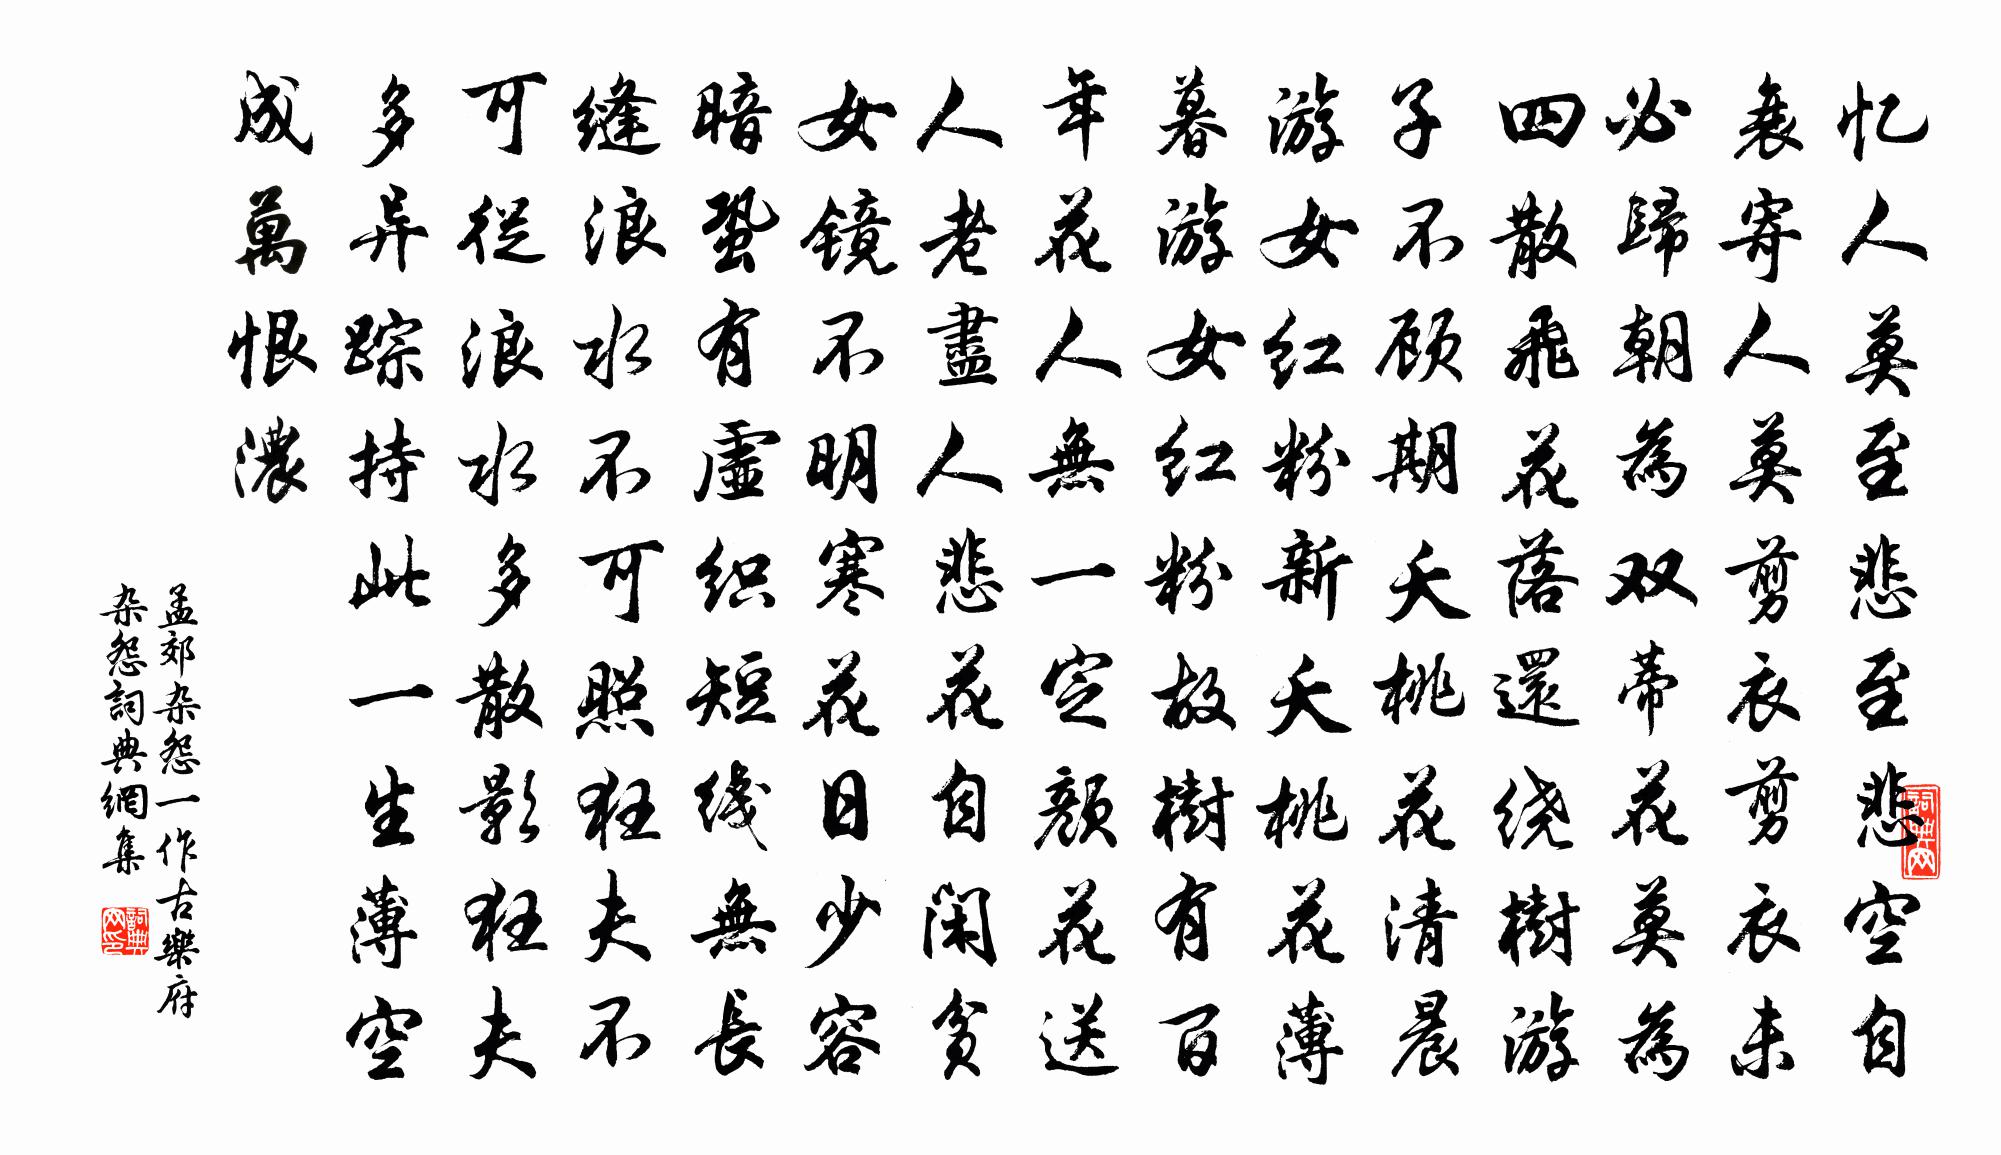 忆人莫至悲至悲空自
衰寄人莫剪衣剪衣未
必歸朝為双蒂花莫為
四散飛花落還绕樹游
子不顾期夭桃花清晨
游女红粉新夭桃花薄
暮游女红粉故樹有百
年花人無一定颜花送
人老盡人悲花自闲贫
女镜不明寒花日少容
暗蛩有虚织短线無長
缝浪水不可照狂夫不
可從浪水多散影狂夫
多异踪持此一生薄空
成萬恨濃
孟郊杂怨一作古樂府
杂怨詞典網集
詞典网
詞典网印